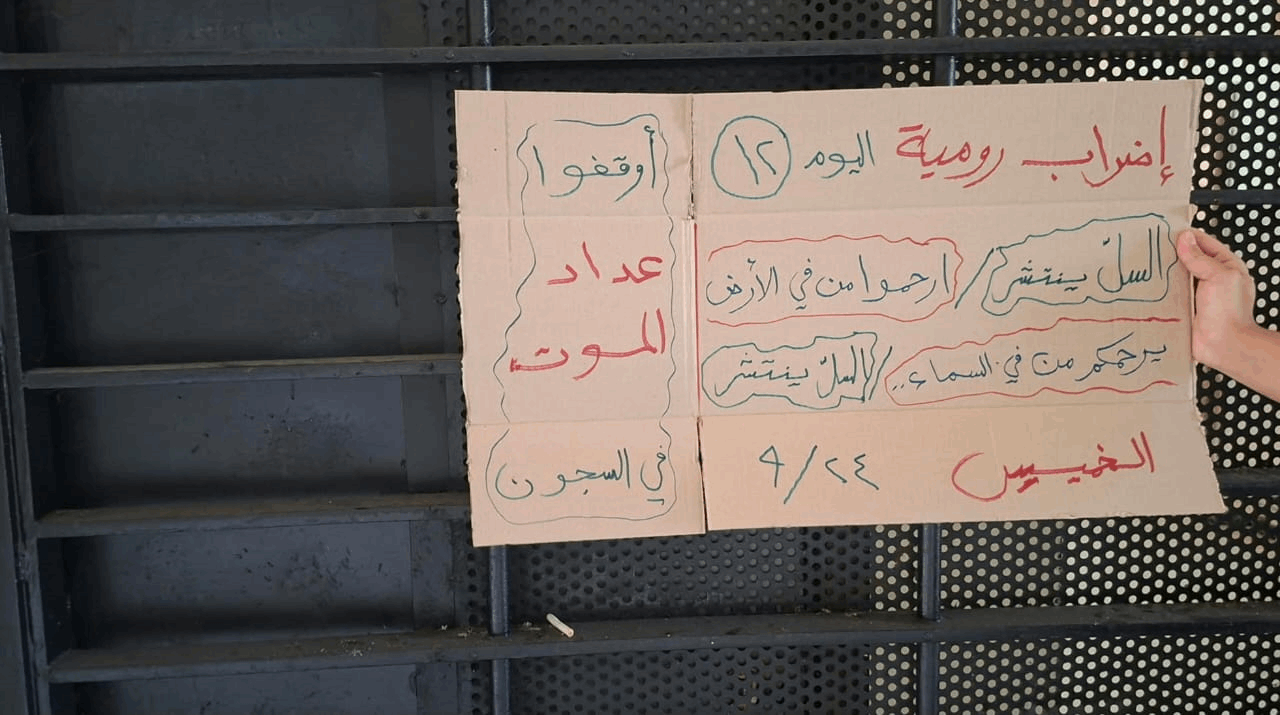 إضراب رومية اليوم ١٢
السلّ ينتشر / ارحموا من في الأرض
يرحمكم من في السماء.. / السلّ ينتشر
الخميس ٢٤/٩
أوقفوا
عداد
الموت
في السجون